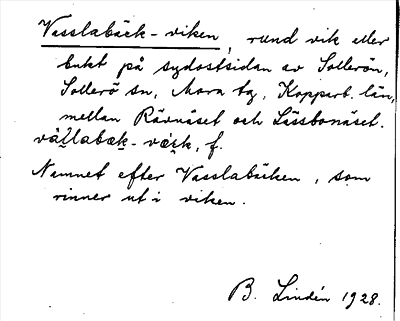 Vasslabäck-viken, rund vik eller
bukt på sydostsidan av Sollerön,
Sollerö sn, Mora tg, Kopparb. län,
mellan Rävnäset och Lässbonäset.
Namnet efter Vasslabäcken, som
rinner ut i viken.
B. Lindén 1928.